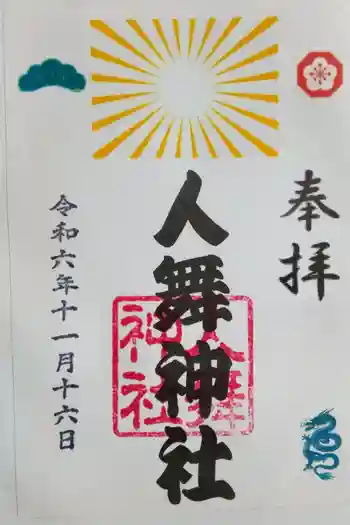 奉拝
人舞神社
人舞
神社
令和六年十一月十六日